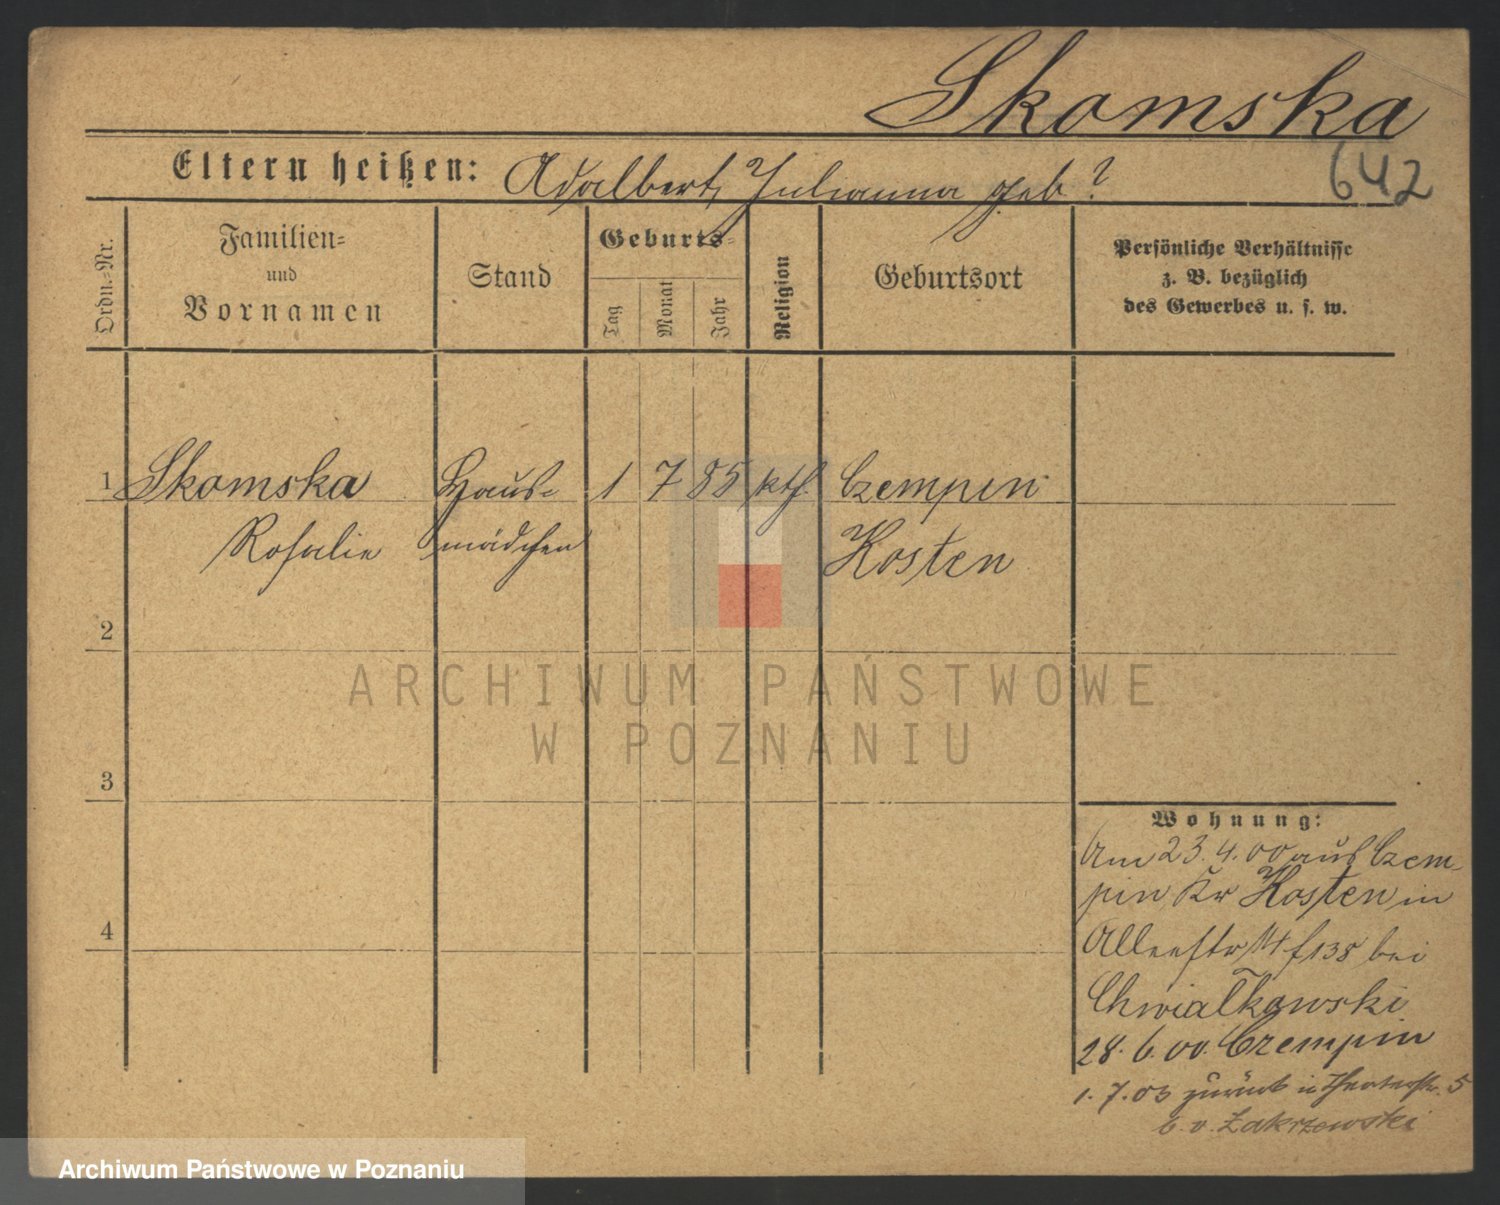 Skomska
642
Eltern heißen: Adalbert, Julianna geb ?
Ordn.=Nr.
Familien=
und
Vornamen
Stand
Geburts=
Tag
Monat
Jahr
Religion
Geburtsort
Persönliche Verhältnisse
z. B. bezüglich
des Gewerbes u. s. w.
1 Skomska Haus= 1 7 85 kth. Czempin
Rosalie mädchen Kosten
2
ARCHIWUM PAŃSTWOWE
W POZNANIU
3
4
Wohnung:
Am 23.4.00 aus Czem-
pin Kr Kosten in
Alleestr 14 f 138 bei
Chwialkowski
28.6.00. Czempin
1.7.03 zurück in Theaterstr. 5
b. v. Zakrzewski
Archiwum Państwowe w Poznaniu